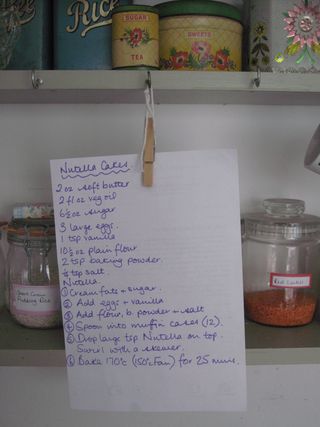 Rice
SUGAR
TEA
SWEETS
Nutella Cakes.
2 oz soft butter
2 fl oz veg oil
6½ oz sugar
3 large eggs.
1 tsp vanilla
10½ oz plain flour
2 tsp baking powder.
½ tsp salt.
Nutella.
① Cream fats + sugar.
② Add eggs + vanilla
③ Add flour, b. powder + salt
④ Spoon into muffin cases (12)
⑤ Dop large tsp Nutella on top.
Swirl with a skewer.
⑥ Bake 170°c (150°c Fan) for 25 mins.
Short Grain
Pudding Rice
Red Lentils